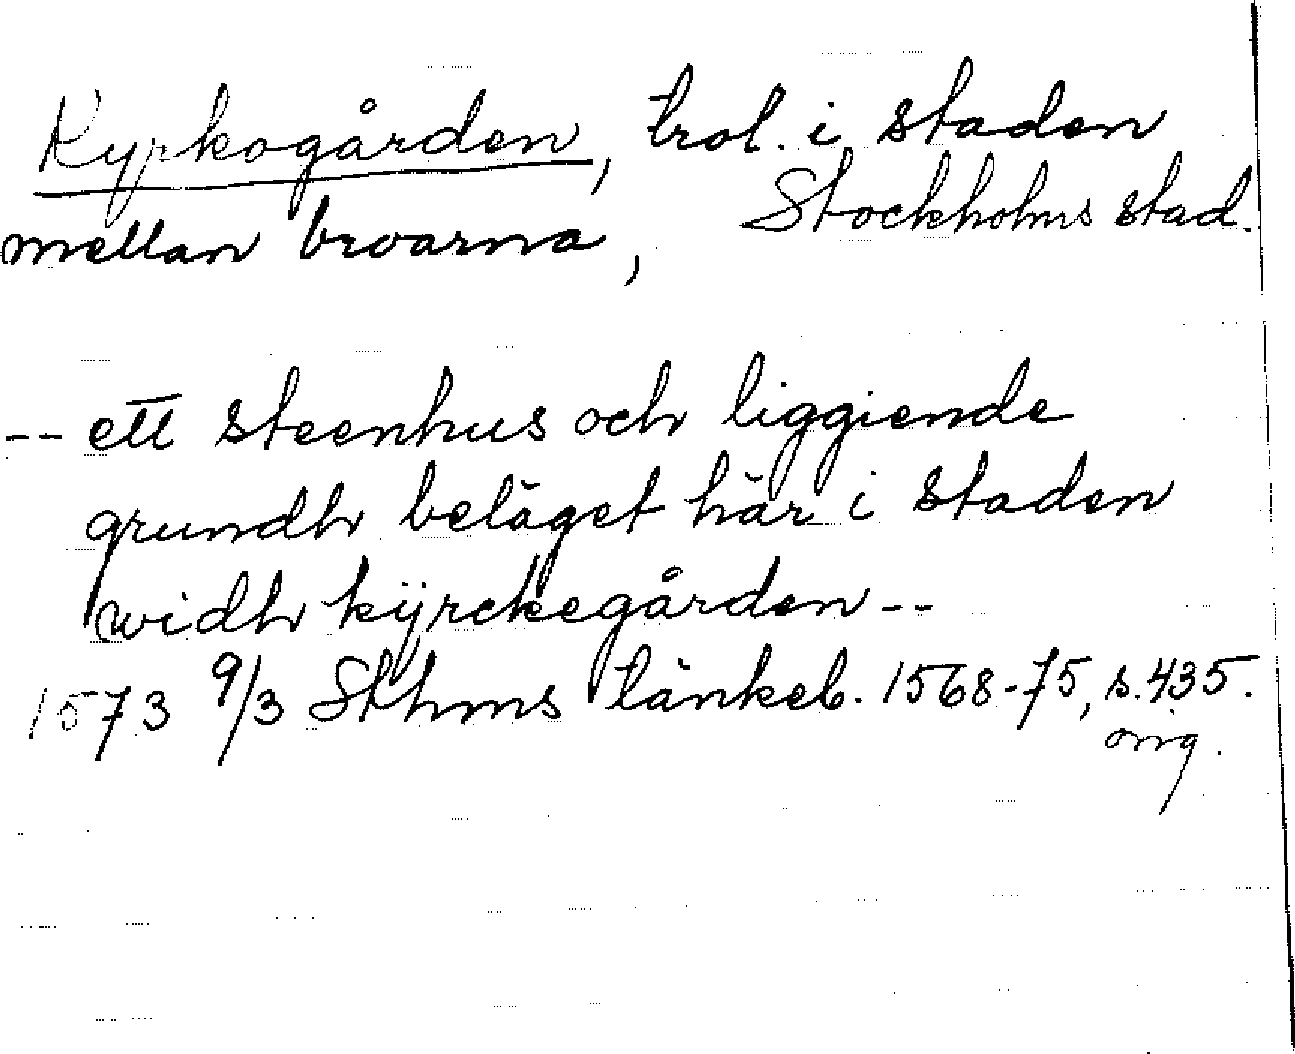 Kyrkogården, trol. i staden
mellan broarna, Stockholms stad.
-- ett steenhus och liggiende
grundh beläget här i staden
widh kÿrckegården --
1573 9/3 Sthms tänkeb. 1568-75, s. 435.
orig.